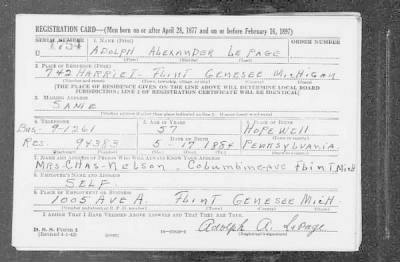 REGISTRATION CARD—(Men born on or after April 28, 1877 and on or before February 16, 1897)
SERIAL NUMBER 1. NAME (Print) ORDER NUMBER
U ADOLPH ALEXANDER LE PAGE
(First) (Middle) (Last)
2. PLACE OF RESIDENCE (Print)
742 HARRIET- FLINT GENESEE MICHIGAN
(Number and street) (Town, township, village, or city) (County) (State)
[THE PLACE OF RESIDENCE GIVEN ON THE LINE ABOVE WILL DETERMINE LOCAL BOARD
JURISDICTION; LINE 2 OF REGISTRATION CERTIFICATE WILL BE IDENTICAL]
3. MAILING ADDRESS
SAME
[Mailing address if other than place indicated on line 2. If same insert word same]
4. TELEPHONE 5. AGE IN YEARS 6. PLACE OF BIRTH
Bus- 9-1261 57 HOPEWELL
DATE OF BIRTH (Town or county)
RES. 94383 5 - 17 1884 PENNSYLVANIA
(Exchange) (Number) (Mo.) (Day) (Yr.) (State or country)
7. NAME AND ADDRESS OF PERSON WHO WILL ALWAYS KNOW YOUR ADDRESS
MRS. CHAS- NELSON - COLUMBINE AVE FLINT MICH
8. EMPLOYER'S NAME AND ADDRESS
SELF
9. PLACE OF EMPLOYMENT OR BUSINESS
1005 AVE A. FLINT GENESEE MICH
(Number and street or R. F. D. number) (Town) (County) (State)
I AFFIRM THAT I HAVE VERIFIED ABOVE ANSWERS AND THAT THEY ARE TRUE.
D. S. S. Form 1
(Revised 4-1-42) (over) Adolph A. LePage
(Registrant's signature)